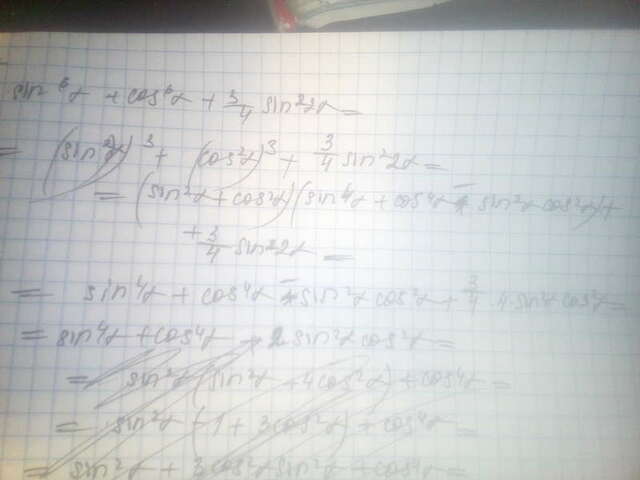 sin⁶α + cos⁶α + 3/4 sin²2α =
= (sin²α)³ + (cos²α)³ + 3/4 sin²2α =
= (sin²α + cos²α)(sin⁴α + cos⁴α - sin²α cos²α) +
+ 3/4 sin²2α =
= sin⁴α + cos⁴α - sin²α cos²α + 3/4 · 4 sin²α cos²α =
= sin⁴α + cos⁴α + 2 sin²α cos²α =
= sin²α (sin²α + 4cos²α) + cos⁴α =
= sin²α (1 + 3cos²α) + cos⁴α =
= sin²α + 3cos²α sin²α + cos⁴α =